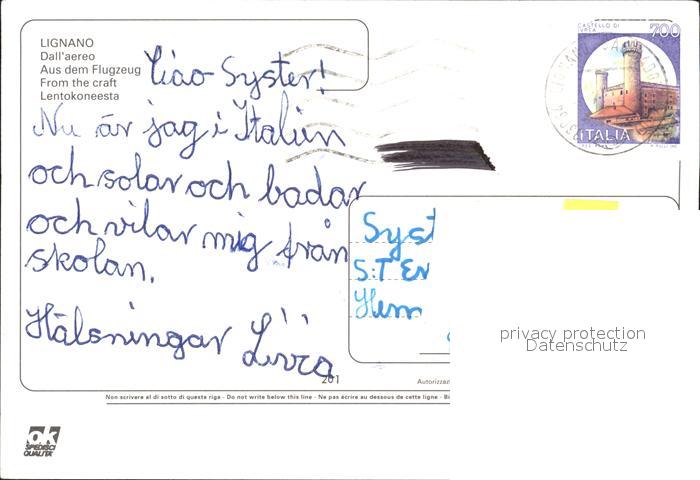 LIGNANO
Dall'aereo
Aus dem Flugzeug
From the craft
Lentokoneesta
Ciao Syster!
Nu är jag i Italien
och solar och badar
och vilar mig från
skolan.
Hälsningar
CASTELLO DI
IVREA
700
ITALIA
Syst
S:T Er
Hem
privacy protection
Datenschutz
201
Autorizza
Non scrivere al di sotto di questa riga - Do not write below this line - Ne pas écrire au dessous de cette ligne - Bi
ok
SPEDISCI
QUALITÀ